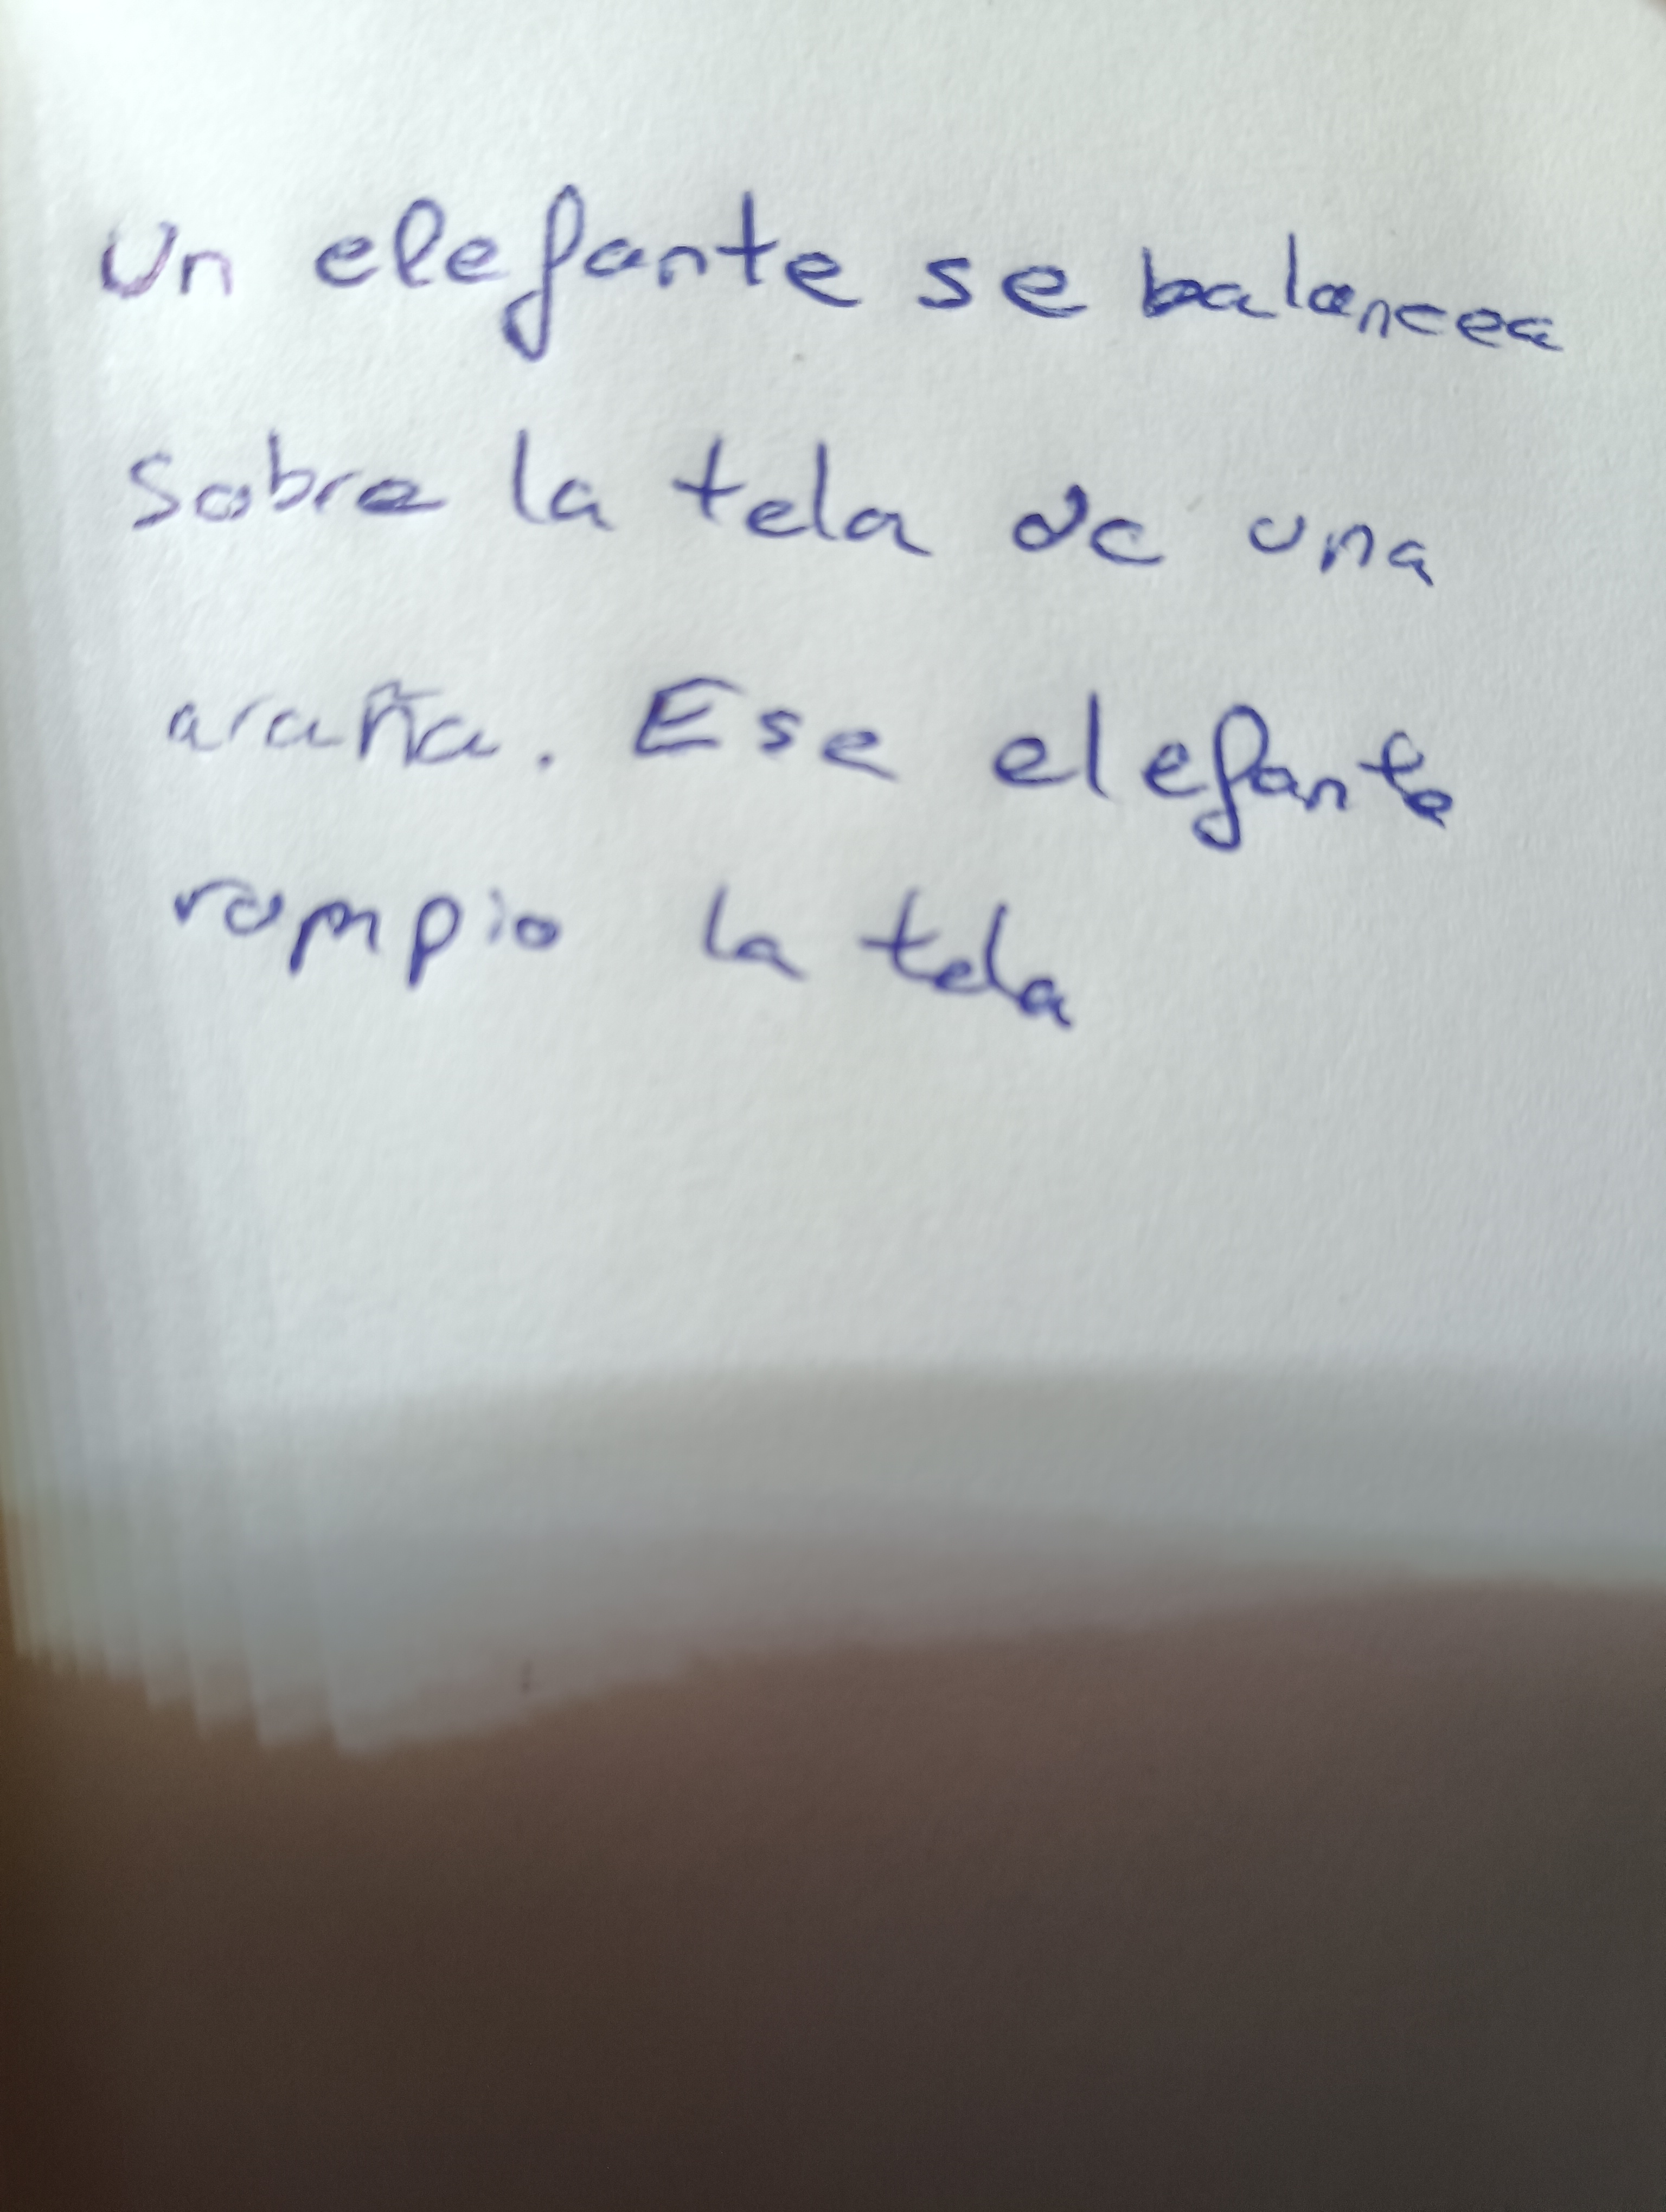 Un elefante se balancea
sobre la tela de una
araña. Ese elefante
rompio la tela